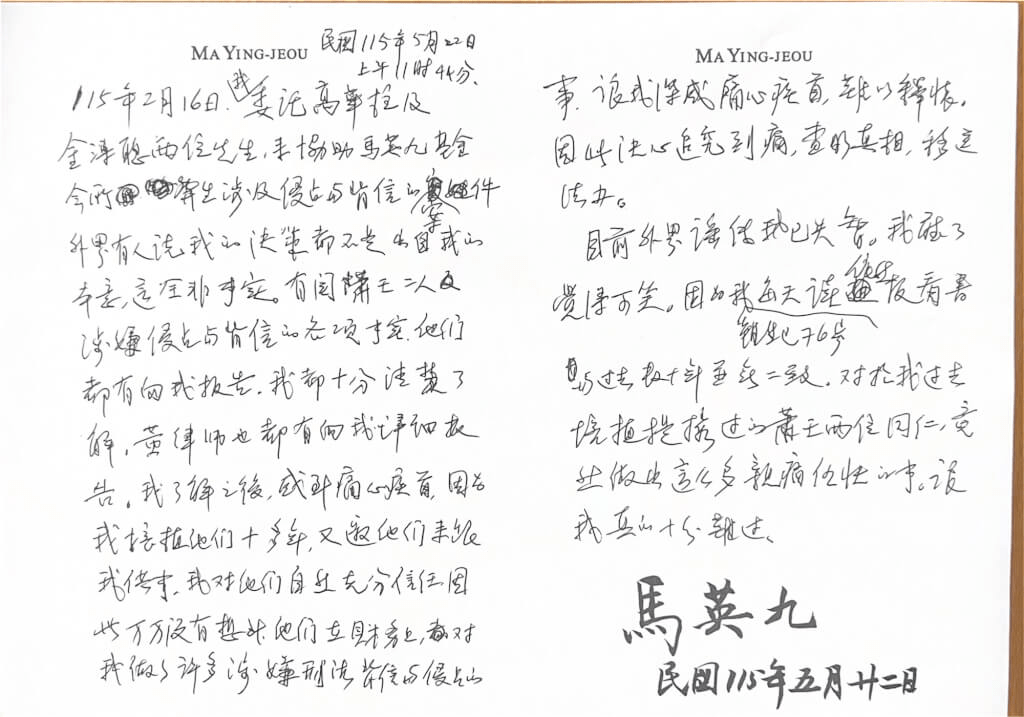 MA YING-JEOU
民國115年5月22日
上午11时44分、
115年2月16日、我委託高華柱及
金溥聰兩位先生,来協助馬英九基金
会所發生涉及侵占与背信的案件
外界有人说我的决策都不是出自我的
本意,這全非事实。有関蕭王二人
涉嫌侵占与背信的各項事实,他们
都有向我报告,我都十分清楚了
解,黄律师也都有向我详细报
告。我了解之後,感到痛心疾首,因为
我培植他们十多年,又邀他们来跟
我做事,我对他们自然充分信任,因
此万万没有想到他们在財務上,都对
我做了許多涉嫌刑法背信与侵占的
MA YING-JEOU
事,讓我深感痛心疾首,難以釋怀。
因此决心追究到底,查明真相,移送
法办。
目前外界谣传我已失智。我聽了
觉得可笑。因为我每天读报看書
与过去数十年並無二致。对於我过去
培植提携过的蕭王兩位同仁,竟
然做出這么多親痛仇快的事。讓
我真的十分難过。
馬英九
民國115年五月廿二日